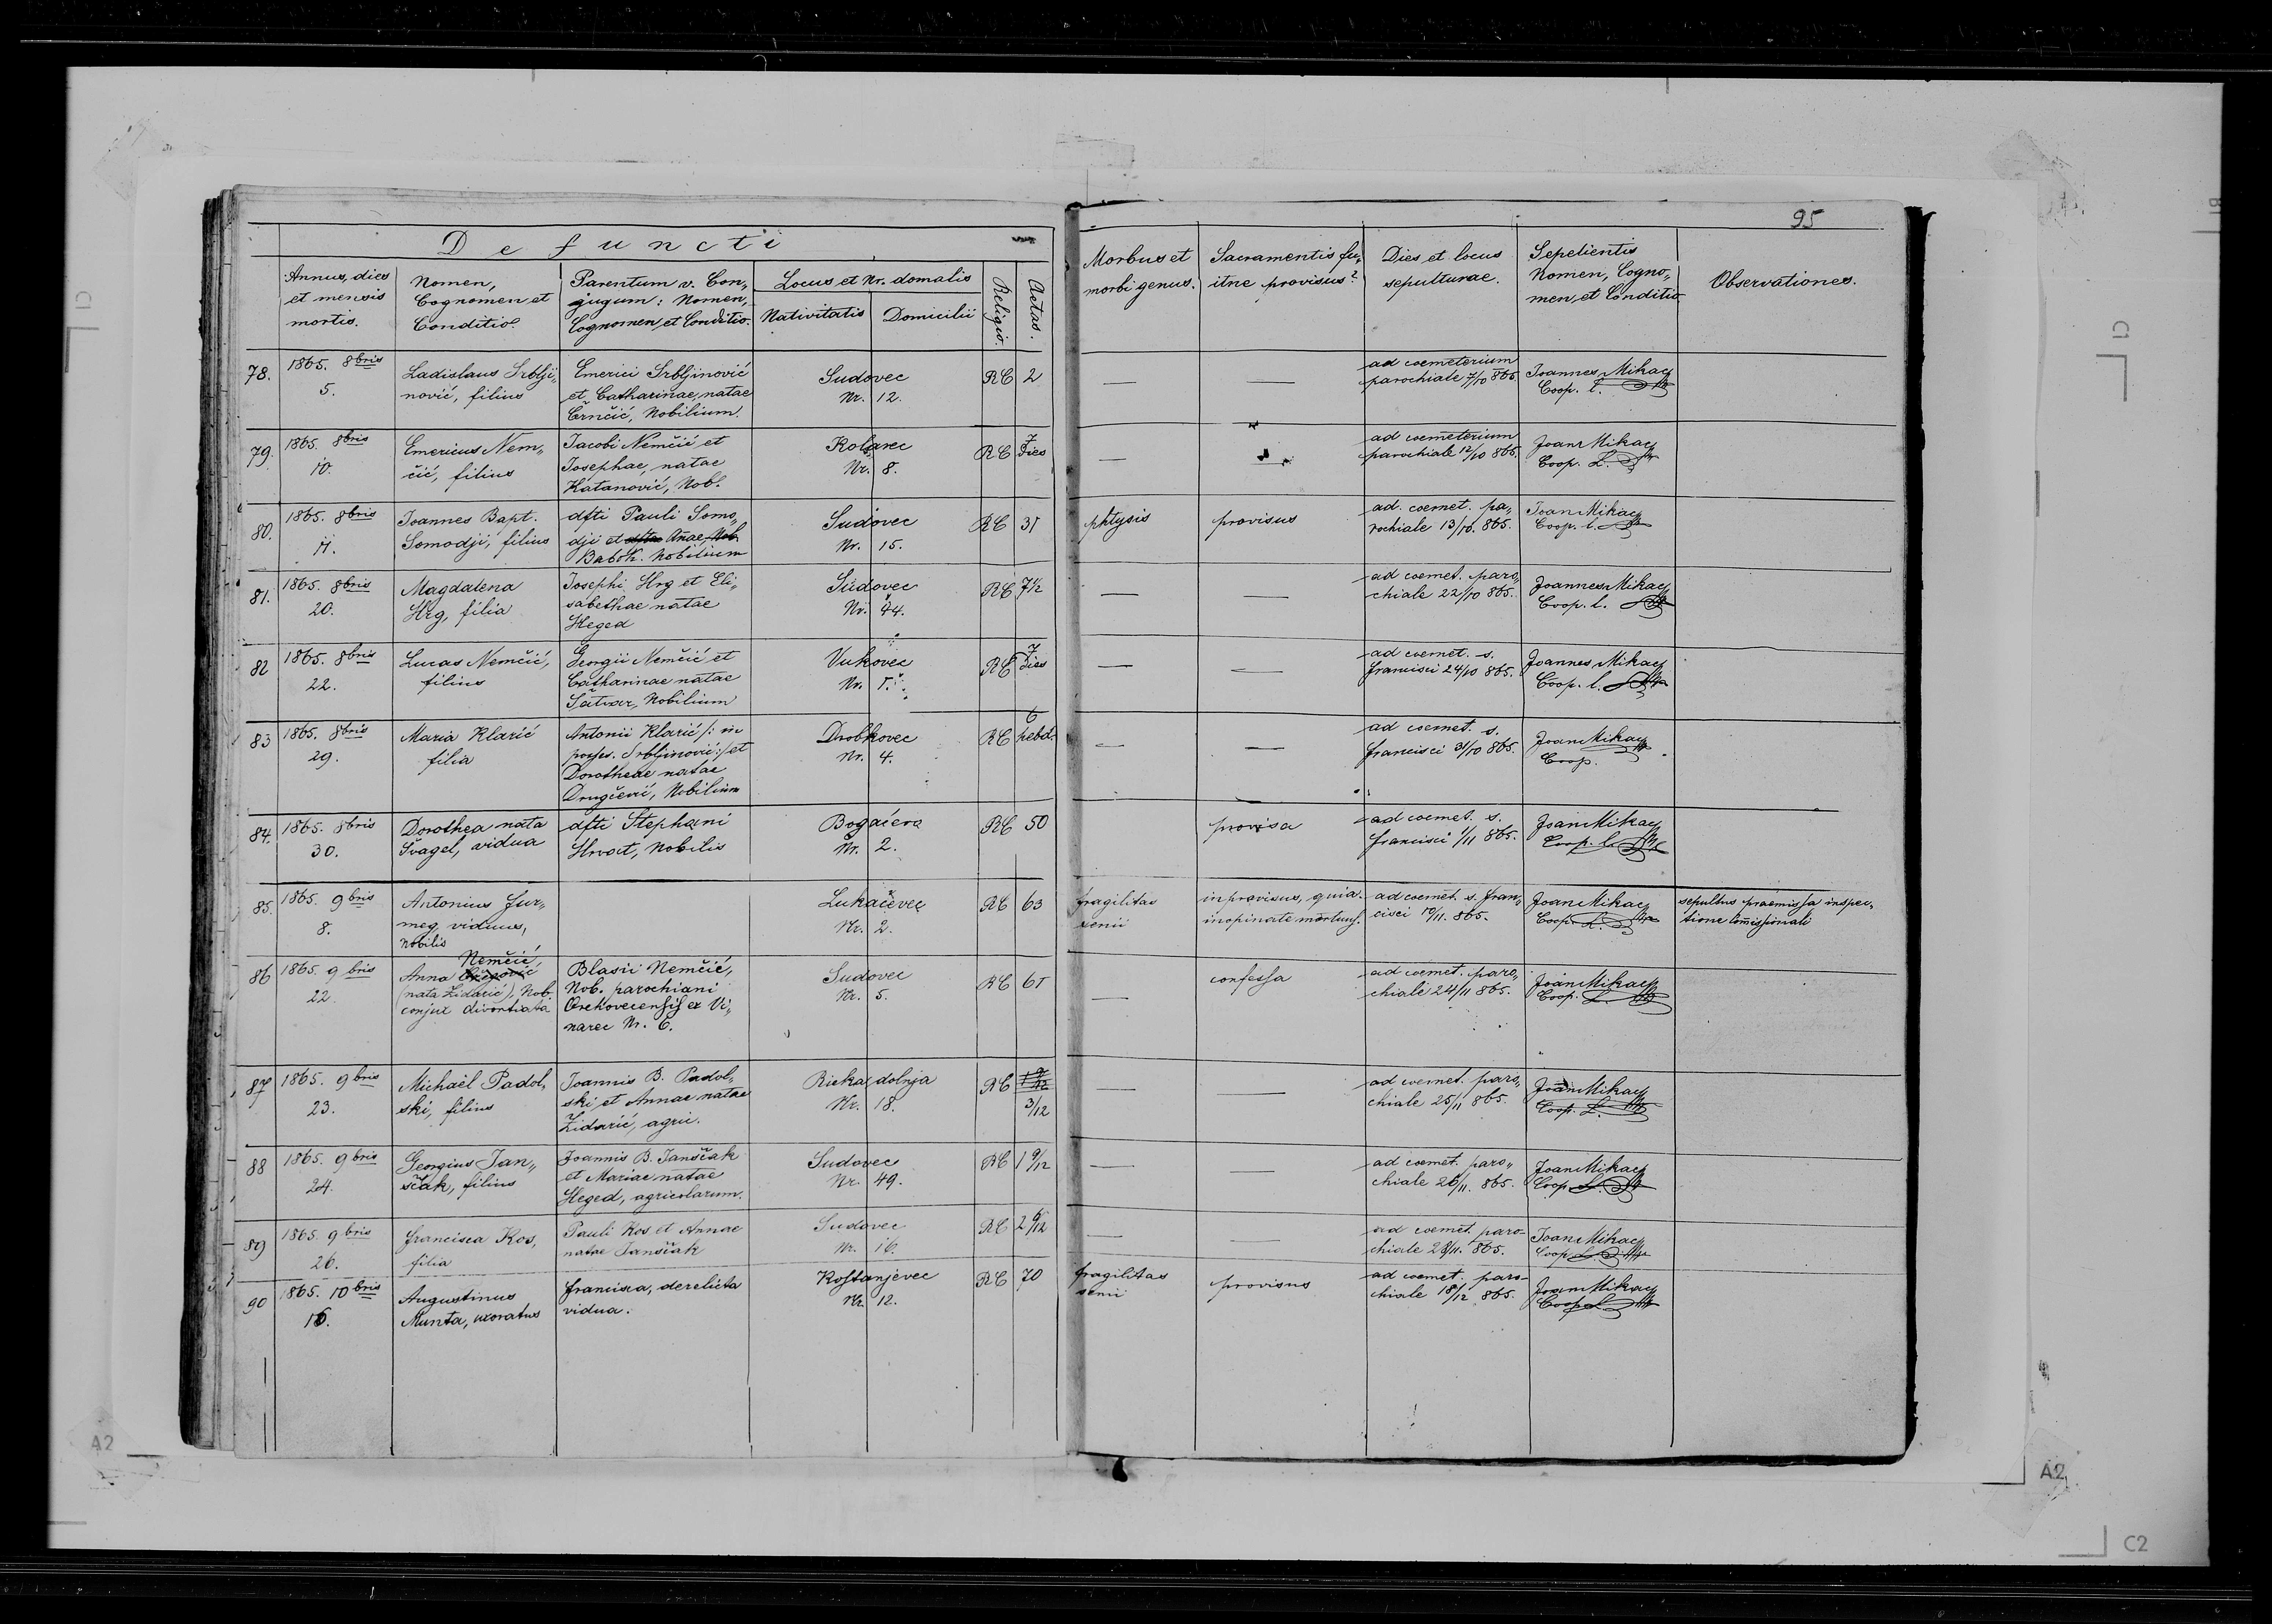 95
Defuncti
Annus, dies
et mensis
mortis.
Nomen,
Cognomen et
Conditio.
Parentum v. Con„
jugum: Nomen,
Cognomen et Conditio.
Locus et Nr. domalis
Nativitatis
Domicilii
Religio.
Aetas.
Morbus et
morbi genus.
Sacramentis fu„
itne provisus?
Dies et locus
sepulturae.
Sepelientis
Nomen, Cogno„
men et Conditio
Observationes.
78.
1865. 8bris
5.
Ladislaus Srblji„
nović, filius
Emerici Srbljinović
et Catharinae, natae
Črnčić, Nobilium.
Sudovec
Nr. 12.
RC
2
—
—
ad coemeterium
parochiale 7/10 865.
Joannes Mikac
Coop. l.
79.
1865. 8bris
10.
Emericus Nem„
čić, filius
Jacobi Nemčić et
Josephae, natae
Katanović, Nob.
Kolarec
Nr. 8.
RC
7
Dies
—
—
ad coemeterium
parochiale 12/10 865.
Joan Mikac
Coop. L.
80.
1865. 8bris
11.
Joannes Bapt.
Somodji, filius
dfti Pauli Somo„
dji et Anae, Nob.
Babok. Nobilium
Sudovec
Nr. 15.
RC
31
phtysis
provisus
ad. coemet. pa„
rochiale 13/10. 865.
Joan Mikac
Coop. l.
81.
1865. 8bris
20.
Magdalena
Hrg, filia
Josephi Hrg et Eli„
sabethae natae
Heged
Sudovec
Nr. 44.
RC
7 1/2
—
—
ad coemet. paro„
chiale 22/10 865.
Joannes Mikac
Coop. l.
82
1865. 8bris
22.
Lucas Nemčić,
filius
Georgii Nemčić et
Catharinae natae
Šatvar, Nobilium
Vukovec
Nr. 1.
RC
7
Dies
—
—
ad coemet. s.
Francisci 24/10 865.
Joannes Mikac
Coop. l.
83
1865. 8bris
29.
Maria Klarić
filia
Antonii Klarić /: in
profes. Srbljinović :/ et
Dorotheae natae
Drugčević, Nobilium
Drobkovec
Nr. 4.
RC
6
hebd.
—
—
ad coemet. s.
Francisci 31/10 865.
Joan Mikac
Coop.
84.
1865. 8bris
30.
Dorothea nata
Švagel, vidua
dfti Stephani
Hrvat, Nobilis
Bogačevo
Nr. 2.
RC
50
provisa
ad coemet. s.
Francisci 1/11 865.
Joan Mikac
Coop. l.
85.
1865. 9bris
8.
Antonius Jur„
meg, viduus,
Nobilis
Lukačevec
Nr. 2.
RC
63
fragilitas
senii
inprovisus, quia
inopinate mortuus.
ad coemet. s. Fran„
cisci 10/11. 865.
Joan Mikac
Coop. L.
sepultus praemissa inspec„
tione commissionali
86
1865. 9bris
22.
Nemčić,
Anna
(nata Židarić), Nob.
conjux divortiata
Blasii Nemčić,
Nob. parochiani
Orehovecensis ex Vi„
narec Nr. 6.
Sudovec
Nr. 5.
RC
61
—
confessa
ad coemet. paro„
chiale 24/11 865.
Joan Mikac
Coop. L.
87
1865. 9bris
23.
Michaël Padol„
ski, filius
Joannis B. Padol„
ski et Annae natae
Židarić, agric.
Rieka dolnja
Nr. 18.
RC
3/12
—
—
ad coemet. paro„
chiale 25/11 865.
Joan Mikac
Coop. L.
88
1865. 9bris
24.
Georgius Jan„
ščak, filius
Joannis B. Janščak
et Mariae natae
Heged, agricolarum.
Sudovec
Nr. 49.
RC
1 9/12
—
—
ad coemet. paro„
chiale 26/11. 865.
Joan Mikac
Coop. L.
89
1865. 9bris
26.
Francisca Kos,
filia
Pauli Kos et Annae
natae Janščak
Sudovec
Nr. 16.
RC
2 6/12
—
—
ad coemet. paro-
chiale 28/11. 865.
Joan Mikac
Coop. L.
90
1865. 10bris
16.
Augustinus
Munta, uxoratus
Francisca, derelicta
vidua.
Kostanjevec
Nr. 12.
RC
70
fragilitas
senii
provisus
ad coemet. paro-
chiale 18/12 865.
Joan Mikac
Coop. L.
A2
A2
C1
C1
C2